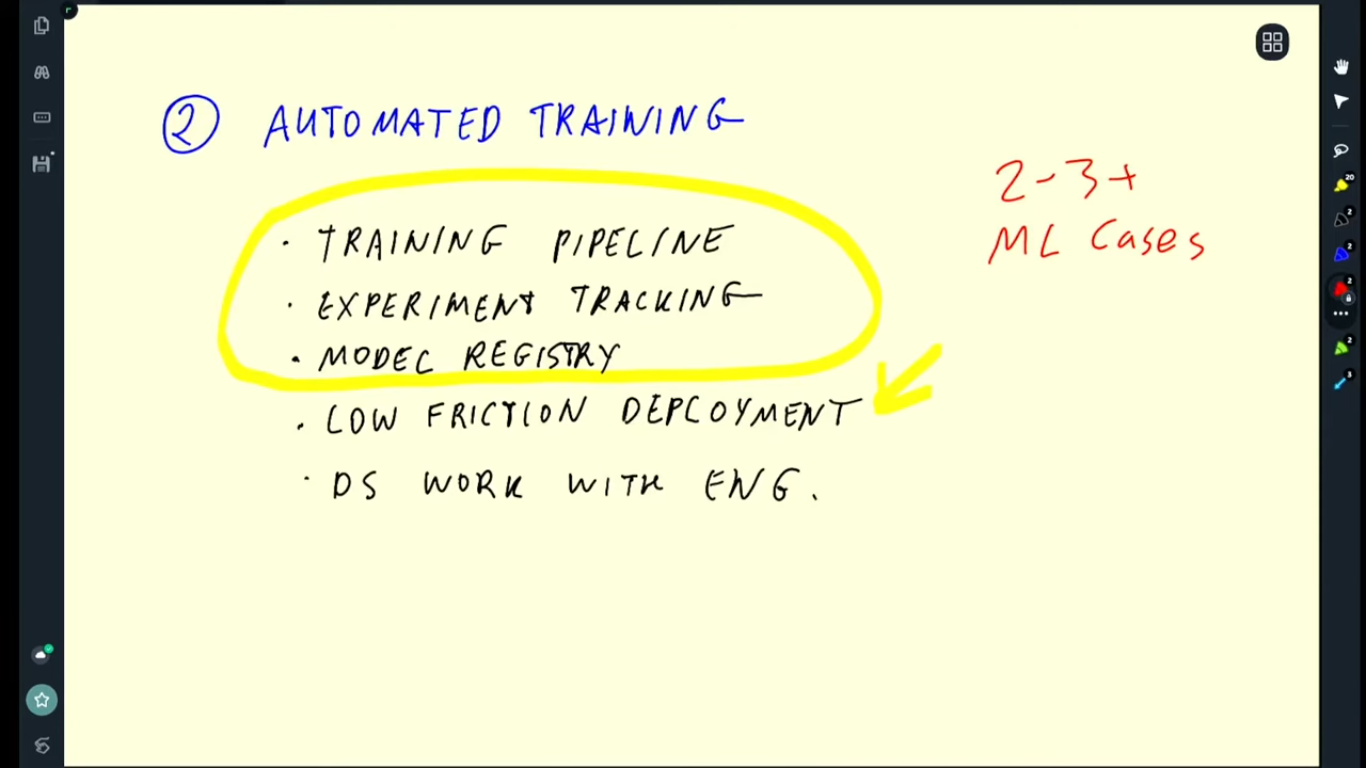 2 AUTOMATED TRAINING
2-3+
ML Cases
· TRAINING PIPELINE
· EXPERIMENT TRACKING
· MODEL REGISTRY
· LOW FRICTION DEPLOYMENT
· DS WORK WITH ENG.
20
2
2
2
2
3